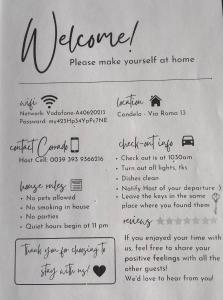 Welcome!
Please make yourself at home
wifi
Network: Vodafone-A40620213
Password: my423Hp34YpPc7NE
location
Candelo - Via Roma 13
contact Corrado
Host Cell: 0039 393 9366216
check-out info
• Check out is at 1030am
• Turn out all lights, tks
• Dishes clean
• Notify Host of your departure :)
• Leave the keys in the same
place where you found them
house rules
• No pets allowed
• No smoking in house
• No parties
• Quiet hours begin at 11 pm
reviews
If you enjoyed your time with
us, feel free to share your
positive feelings with all the
other guests!
We'd love to hear from you!
Thank you for choosing to
stay with us!